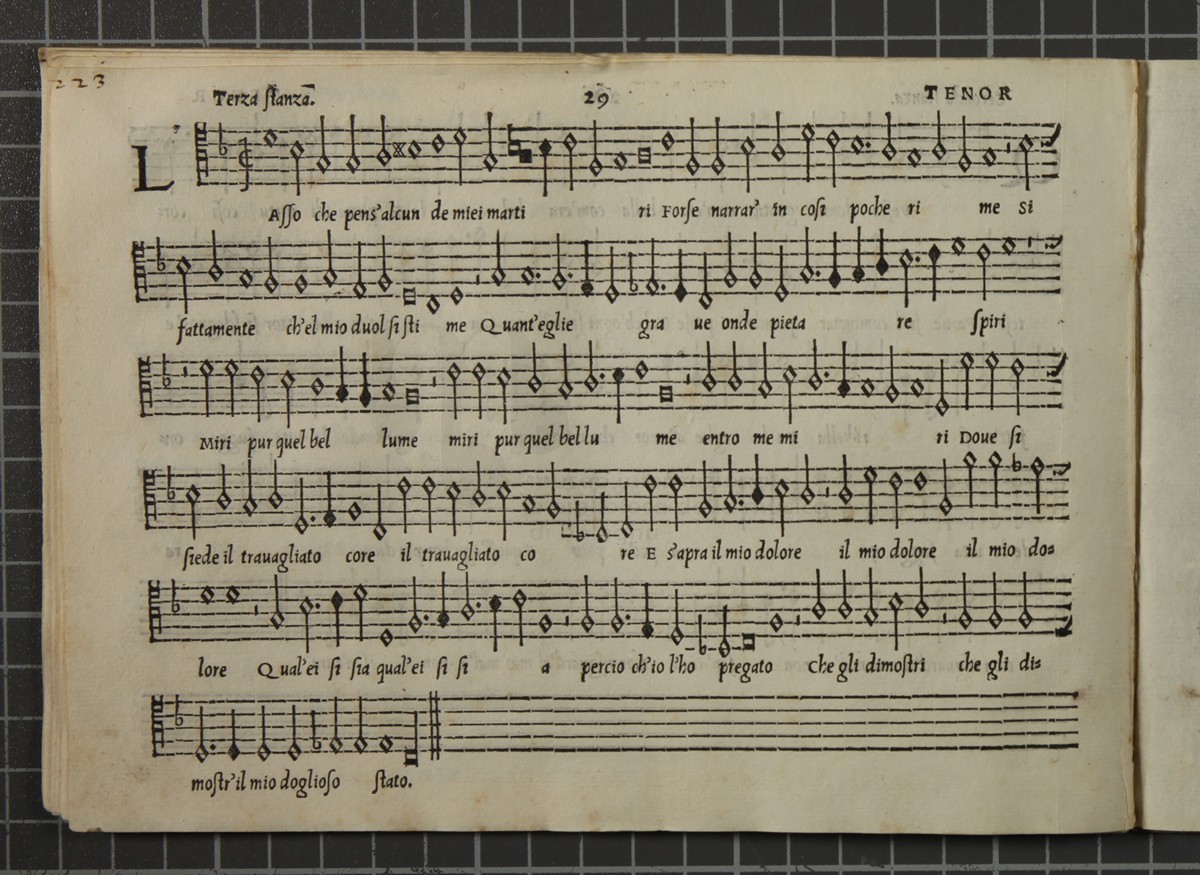 223
Terza stanza. 29 TENOR
LAsso che pens'alcun de miei marti ri Forse narrar' in cosi poche ri me Si
fattamente ch'el mio duol si sti me Quant'eglie gra ue onde pieta re spiri
Miri pur quel bel lume miri pur quel bel lu me entro me mi ri Doue si
siede il trauagliato core il trauagliato co re E s'apra il mio dolore il mio dolore il mio do=
lore Qual'ei si sia qual'ei si si a percio ch'io l'ho pregato Che gli dimostri che gli di=
mostr'il mio doglioso stato.